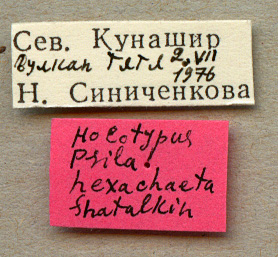 Сев. Кунашир
Вулкан Тятя 2.VII
1976
Н. Синиченкова
Holotypus
Psila
hexachaeta
Shatalkin